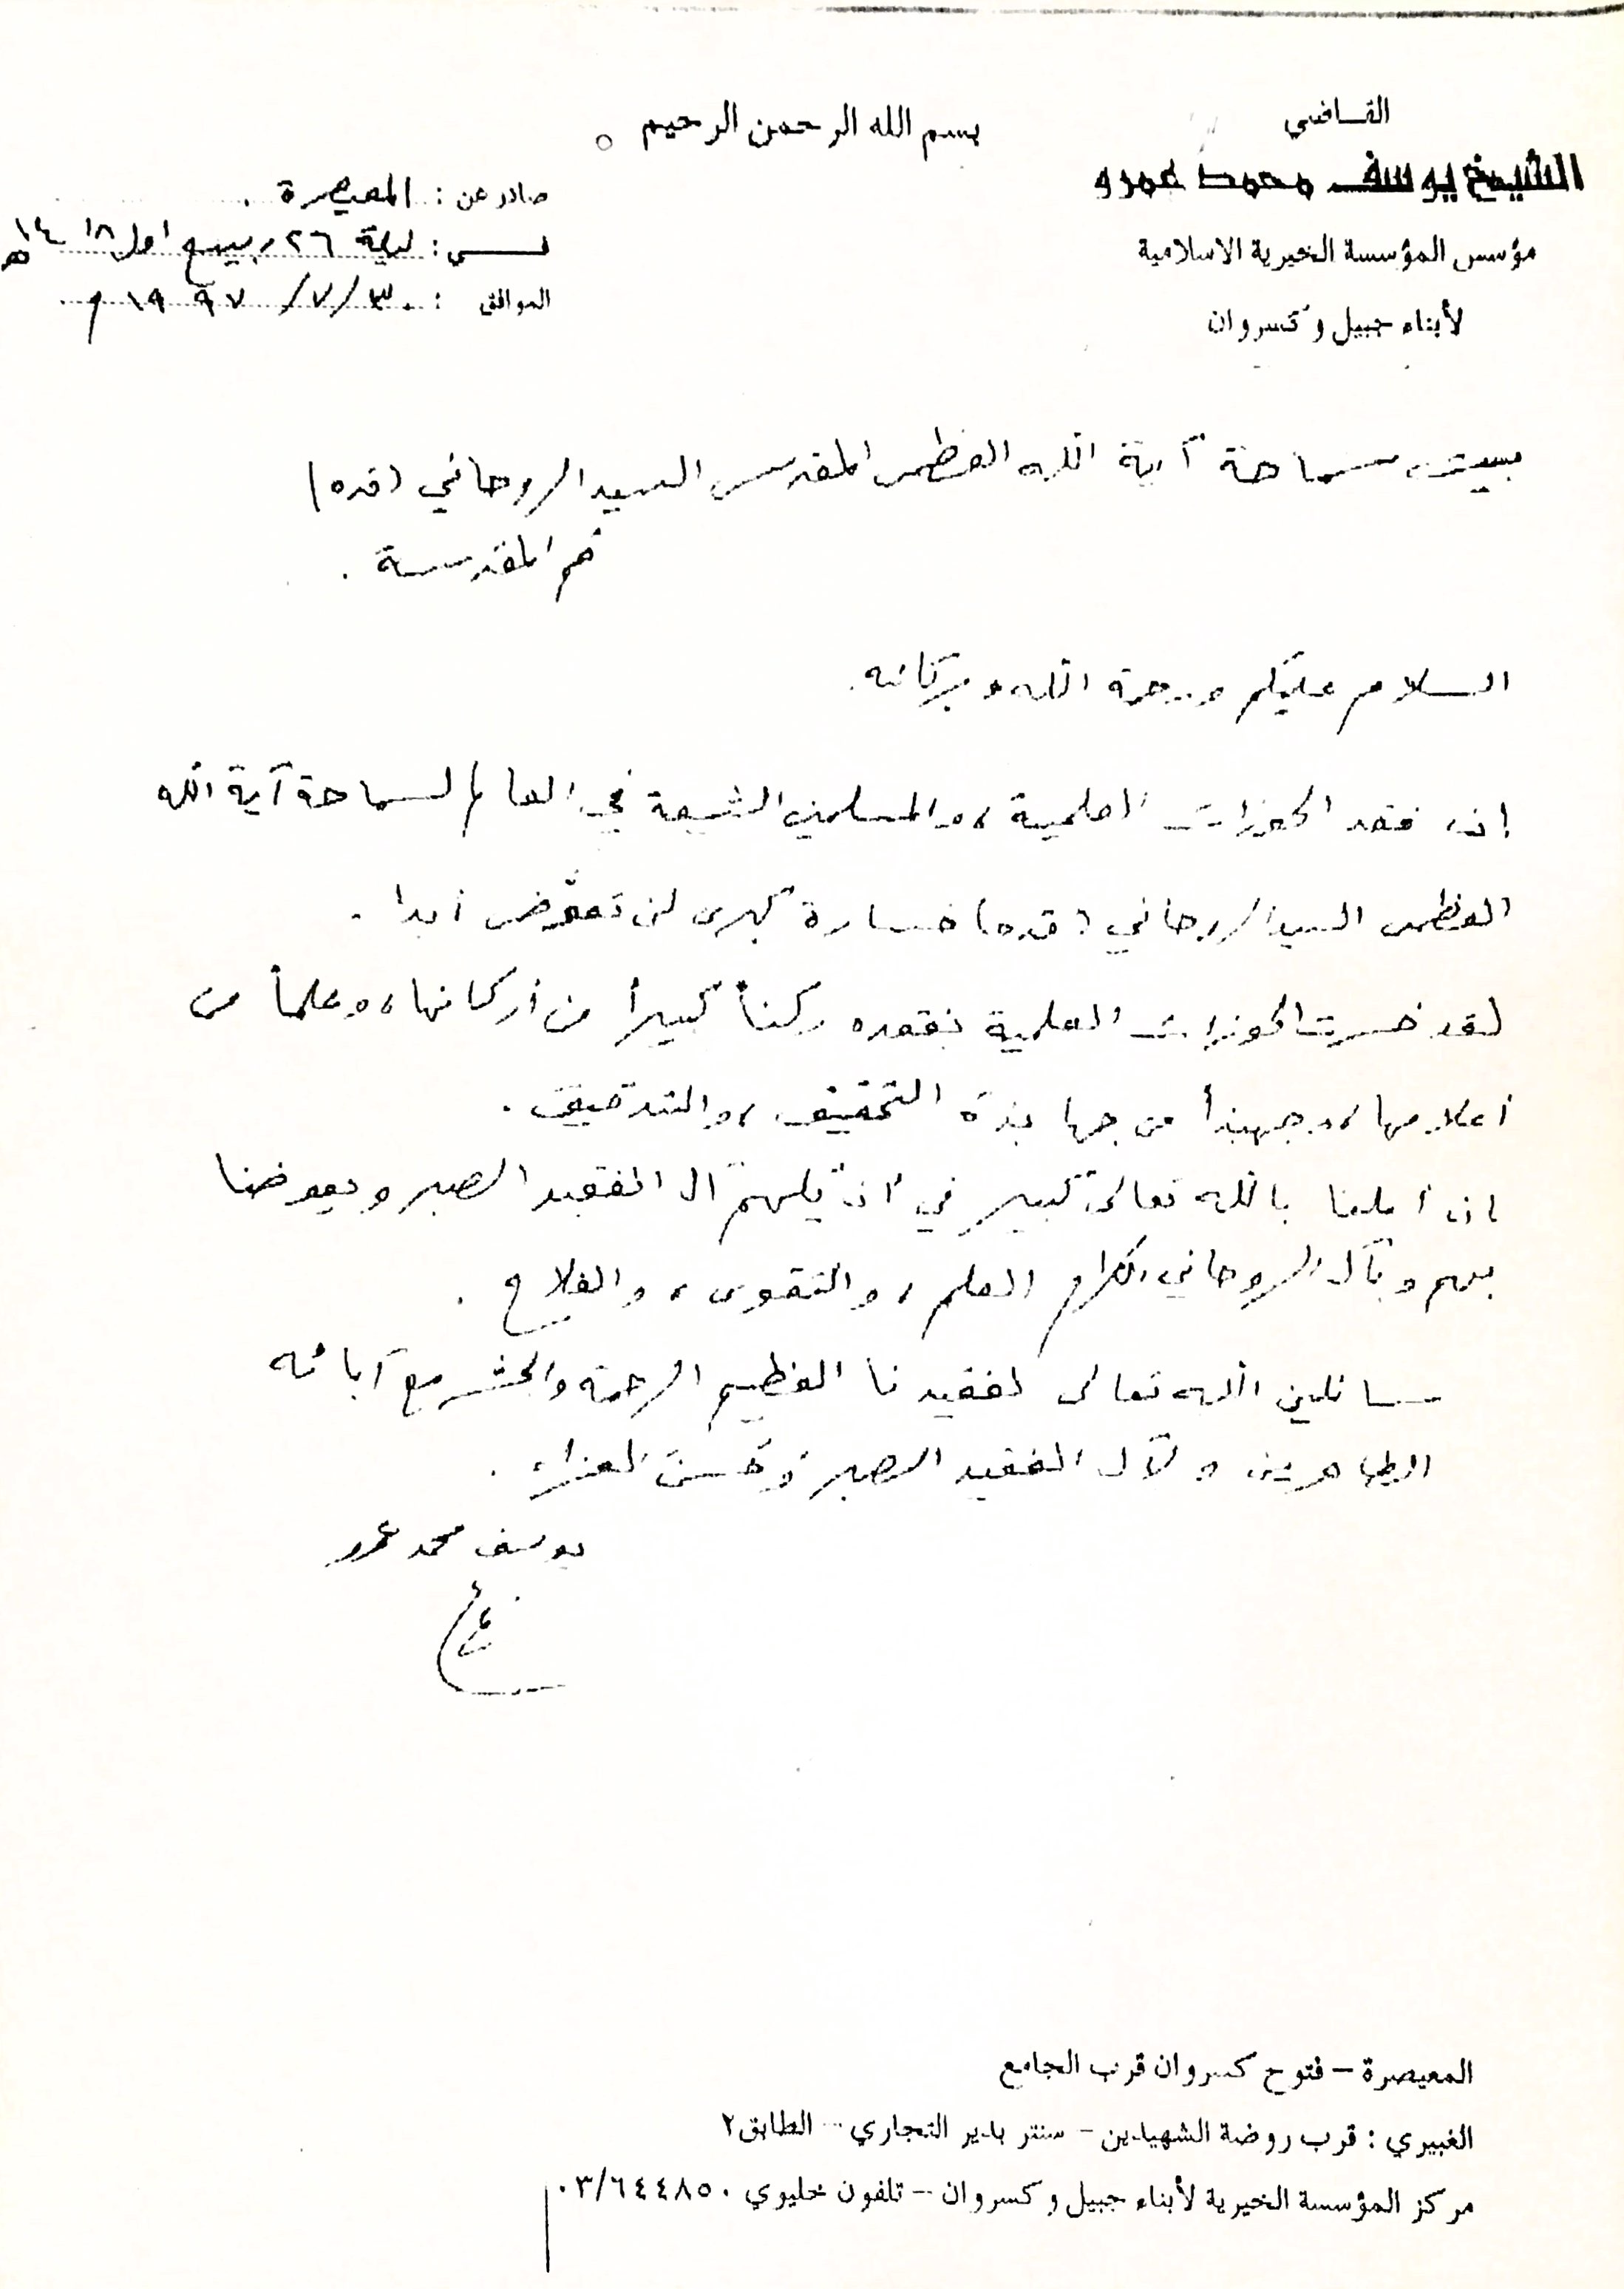 بسم الله الرحمن الرحيم
القاضي
الشيخ يوسف محمد عمرو
مؤسس المؤسسة الخيرية الاسلامية
لأبناء جبيل وكسروان
صادر عن : المعيصرة .
في : ليلة ٢٦ ربيع اول ١٤١٨ هـ
الموافق : ٣٠/٧/١٩٩٧ م
بيت سماحة آية الله العظمى المقدس السيد الروحاني (قده)
قم المقدسة .
السلام عليكم ورحمة الله وبركاته.
إن فقد الحوزات العلمية، والمسلمين الشيعة في العالم لسماحة آية الله
العظمى السيد الروحاني (قده) خسارة كبرى لن تعوَّض أبدا .
لقد خسرت الحوزات العلمية بفقده ركناً كبيراً من أركانها، وعلماً من
أعلامها، وجهبذاً من جهابذة التحقيق، والتدقيق .
إن أملنا بالله تعالى كبير في أن يلهم آل الفقيد الصبر ويعوضنا
بهم وبآل الروحاني الكرام العلم، والتقوى، والفلاح .
سائلين الله تعالى لفقيدنا العظيم الرحمة والحشر مع آبائه
الطاهرين ولآل الفقيد الصبر وحسن العزاء .
يوسف محمد عمرو
المعيصرة – فتوح كسروان قرب الجامع
الغبيري : قرب روضة الشهيدين – سنتر بادير التجاري – الطابق ٢
مركز المؤسسة الخيرية لأبناء جبيل وكسروان – تلفون خليوي ٠٣/٦٤٤٨٥٠